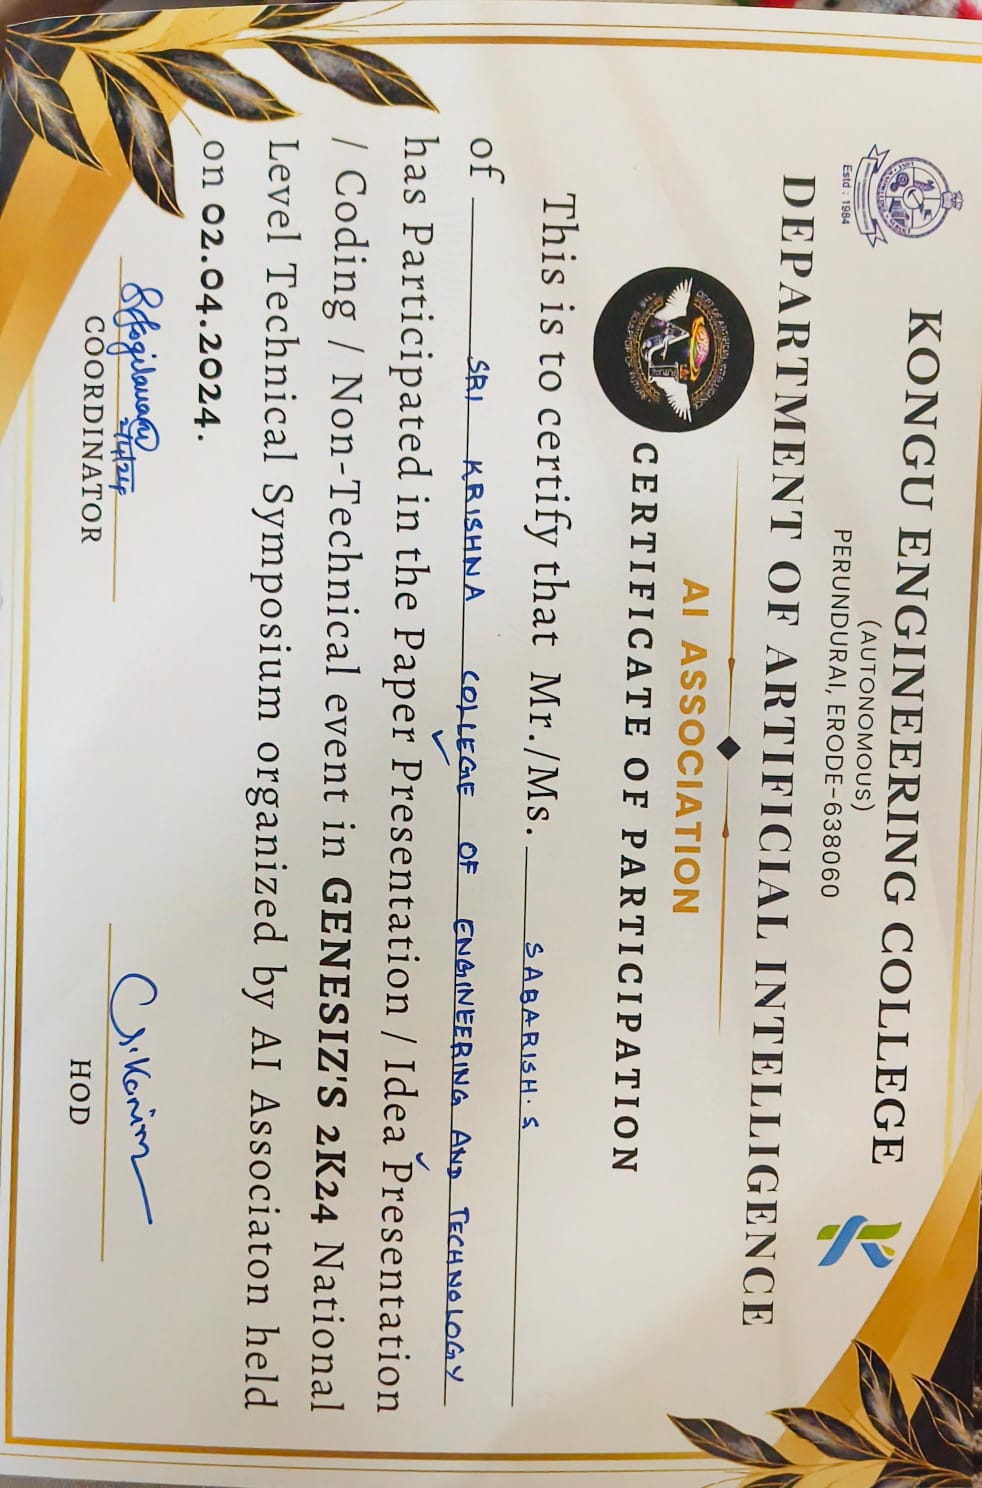 KONGU ENGINEERING COLLEGE
(AUTONOMOUS)
PERUNDURAI, ERODE-638060
Estd : 1984
DEPARTMENT OF ARTIFICIAL INTELLIGENCE
DEPT OF ARTIFICIAL INTELLIGENCE
AI
THE SCULPTOR OF FUTURE
AI ASSOCIATION
CERTIFICATE OF PARTICIPATION
This is to certify that Mr./Ms. SABARISH. S
of SRI KRISHNA COLLEGE OF ENGINEERING AND TECHNOLOGY
has Participated in the Paper Presentation / Idea Presentation
/ Coding / Non-Technical event in GENESIZ'S 2K24 National
Level Technical Symposium organized by AI Associaton held
on 02.04.2024.
2/4/24
COORDINATOR
HOD